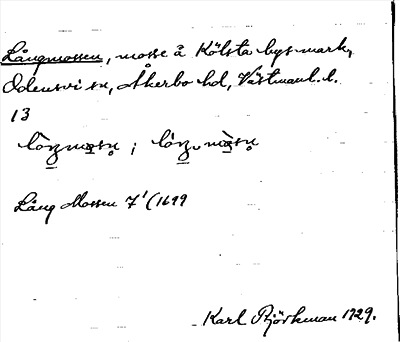 Långmossen, mosse å Kölsta bys mark,
Odensvi sn, Åkerbo hd, Västmanl. l.
13
Lång Mossen 7'/1699
Karl Björkman 1929.